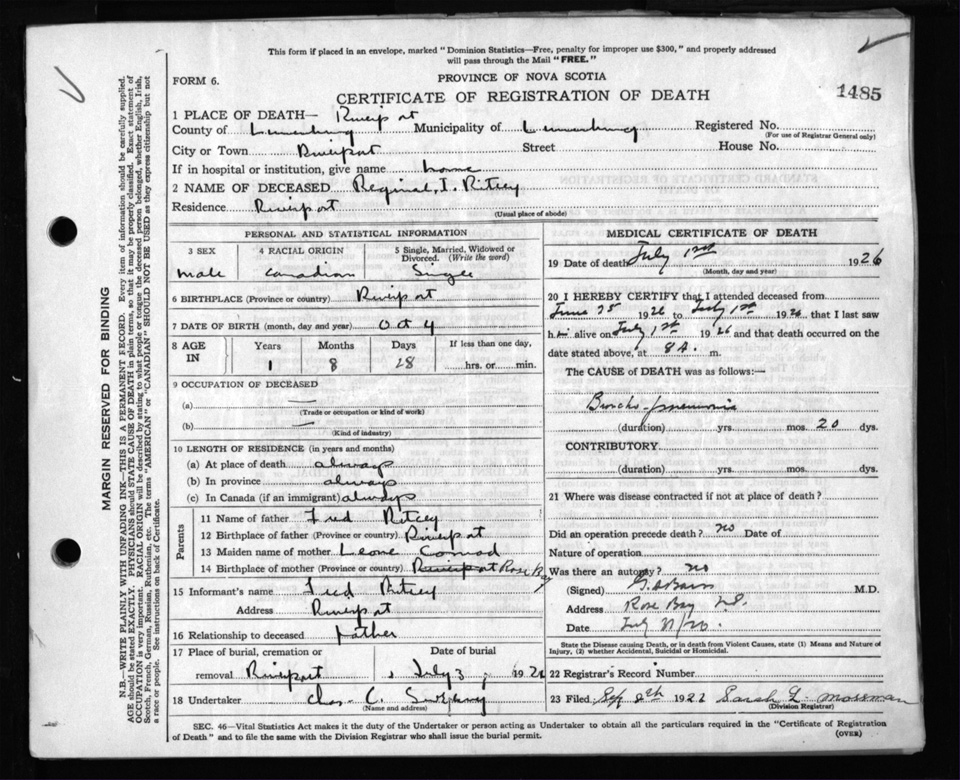 This form if placed in an envelope, marked "Dominion Statistics—Free, penalty for improper use $300," and properly addressed
will pass through the Mail "FREE."
FORM 6.
PROVINCE OF NOVA SCOTIA
CERTIFICATE OF REGISTRATION OF DEATH
1485
1 PLACE OF DEATH— Riverport
County of Lunenburg Municipality of Lunenburg Registered No.
(For use of Registrar General only)
City or Town Riverport Street House No.
If in hospital or institution, give name home
2 NAME OF DECEASED Reginal, I. Ritcey
Residence Riverport
(Usual place of abode)
PERSONAL AND STATISTICAL INFORMATION
3 SEX 4 RACIAL ORIGIN 5 Single, Married, Widowed or
Divorced. (Write the word)
male Canadian Single
6 BIRTHPLACE (Province or country) Riverport
7 DATE OF BIRTH (month, day and year) Oct 4
8 AGE IN Years Months Days If less than one day,
1 8 28 hrs. or min.
9 OCCUPATION OF DECEASED
(a) —
(Trade or occupation or kind of work)
(b) —
(Kind of industry)
10 LENGTH OF RESIDENCE (in years and months)
(a) At place of death always
(b) In province always
(c) In Canada (if an immigrant) always
Parents
11 Name of father Fred Ritcey
12 Birthplace of father (Province or country) Riverport
13 Maiden name of mother Leone Conrad
14 Birthplace of mother (Province or country) Riverport Rose Bay
15 Informant Fred Ritcey
Address Riverport
16 Relationship to deceased father
17 Place of burial, cremation or Date of burial
removal Riverport July 3, 1926
18 Undertaker Chas. C.
(Name and address)
MEDICAL CERTIFICATE OF DEATH
19 Date of death July 1st 1926
(Month, day and year)
20 I HEREBY CERTIFY that I attended deceased from
June 25 1926 to July 1st 1926 that I last saw
him alive on July 1st 1926 and that death occurred on
the date stated above, at 8 A. m.
The CAUSE of DEATH was as follows:—
Broncho-pneumonia
(duration) yrs. mos. 20 dys.
CONTRIBUTORY
(duration) yrs. mos. dys.
21 Where was disease contracted if not at place of death?
Did an operation precede death? no Date of
Nature of operation
Was there an autopsy? no
(Signed) M.D.
Address Rose Bay N.S.
Date July
State the Disease causing Death, or in Death from Violent Causes, state (1) Means and Nature of
Injury, (2) whether Accidental, Suicidal or Homicidal.
22 Registrar's Record Number
23 Filed Sep 192 Sarah L. Mossman
(Division Registrar)
SEC. 46—Vital Statistics Act makes it the duty of the Undertaker or person acting as Undertaker to obtain all the particulars required in the "Certificate of Registration
of Death" and to file the same with the Division Registrar who shall issue the burial permit.
(OVER)
MARGIN RESERVED FOR BINDING
N.B.—WRITE PLAINLY WITH UNFADING INK—THIS IS A PERMANENT RECORD. Every item of information should be carefully supplied.
AGE should be stated EXACTLY. PHYSICIANS should STATE CAUSE OF DEATH in plain terms, so that it may be properly classified. Exact statement of
OCCUPATION is very important. RACIAL ORIGIN will be described by stating to what people or tongue the deceased person belonged, whether English, Irish,
Scotch, French, German, Russian, Ruthenian, etc. The terms "AMERICAN" or "CANADIAN" SHOULD NOT BE USED as they express citizenship but not
a race or people. See instructions on back of Certificate.